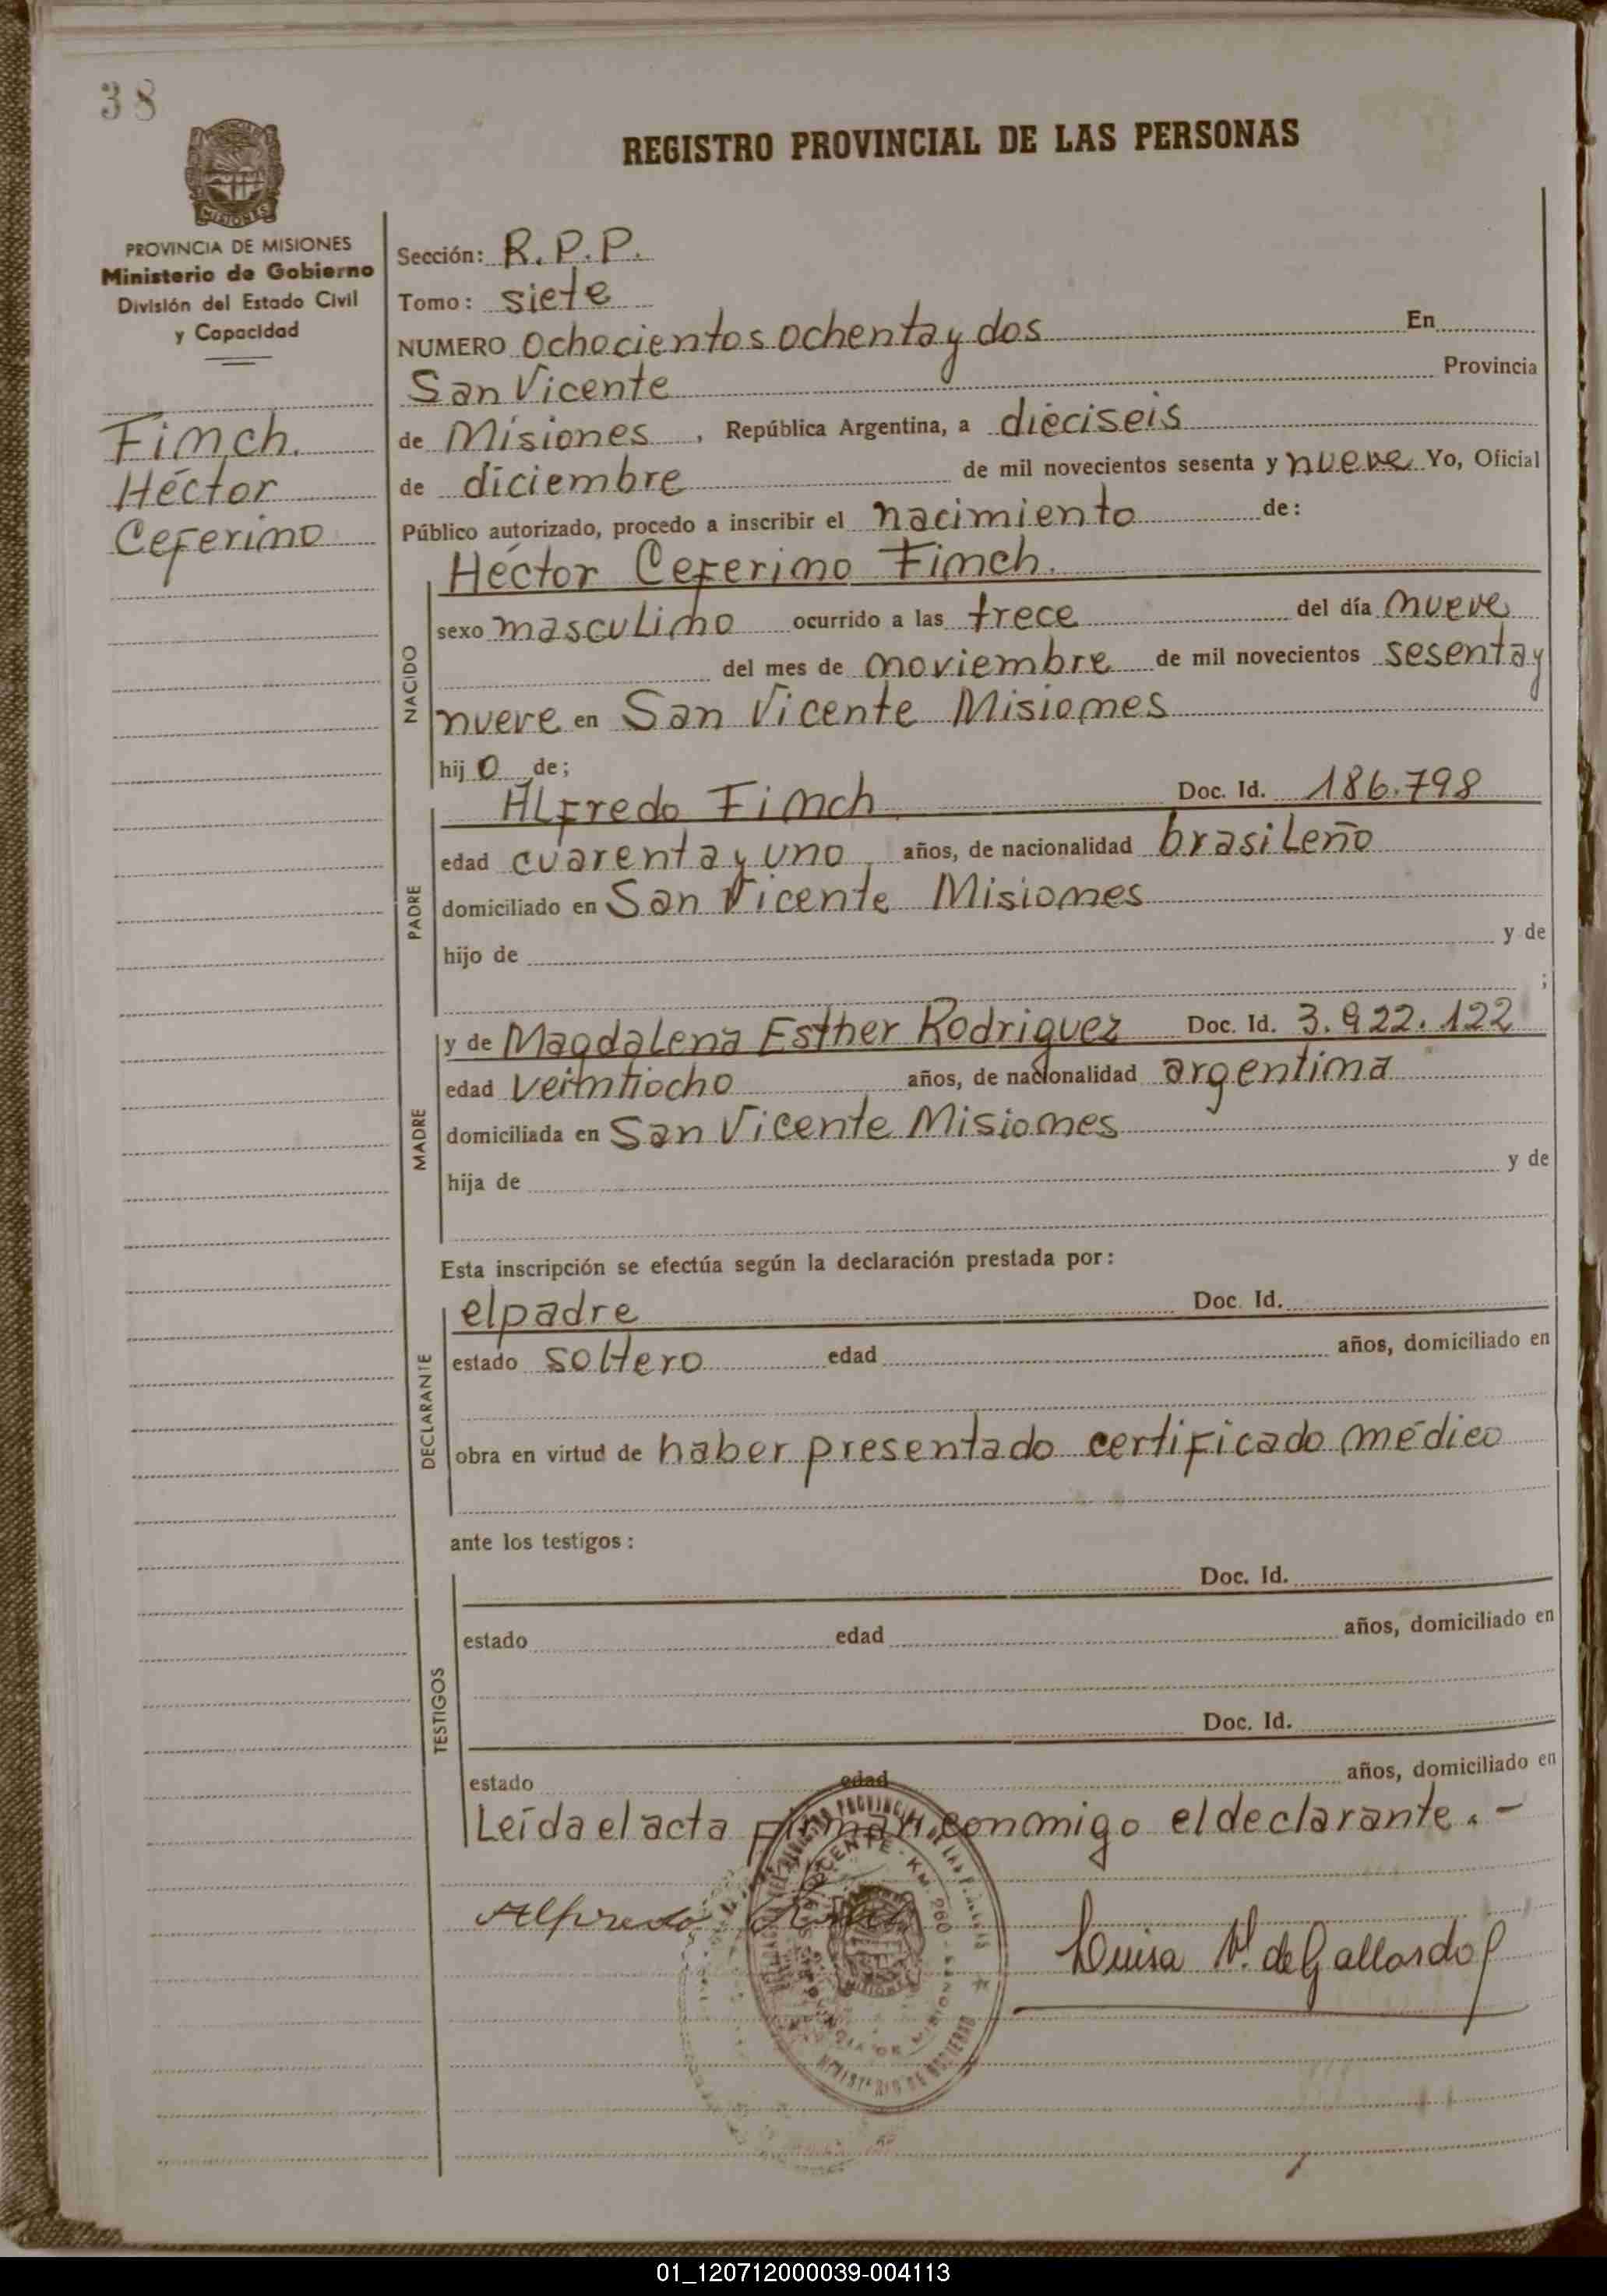 38
REGISTRO PROVINCIAL DE LAS PERSONAS
MISIONES
PROVINCIA DE MISIONES
Ministerio de Gobierno
División del Estado Civil
y Capacidad
Finch.
Héctor
Ceferino
Sección: R.P.P.
Tomo: siete
NUMERO Ochocientos ochenta y dos En
San Vicente Provincia
de Misiones, República Argentina, a dieciseis
de diciembre de mil novecientos sesenta y nueve Yo, Oficial
Público autorizado, procedo a inscribir el nacimiento de:
Héctor Ceferino Finch.
NACIDO
sexo masculino ocurrido a las trece del día nueve
del mes de noviembre de mil novecientos sesenta y
nueve en San Vicente Misiones
hijo de;
PADRE
Alfredo Finch Doc. Id. 186.798
edad cuarenta y uno años, de nacionalidad brasileño
domiciliado en San Vicente Misiones
hijo de y de
;
MADRE
y de Magdalena Esther Rodriguez Doc. Id. 3.922.122
edad veintiocho años, de nacionalidad argentina
domiciliada en San Vicente Misiones
hija de y de
Esta inscripción se efectúa según la declaración prestada por:
DECLARANTE
el padre Doc. Id.
estado soltero edad años, domiciliado en
obra en virtud de haber presentado certificado médico
ante los testigos:
TESTIGOS
Doc. Id.
estado edad años, domiciliado en
Doc. Id.
estado edad años, domiciliado en
Leída el acta firman conmigo el declarante.-
Alfredo
Luisa de Gallardo
VICENTE - KM. 260 - MISIONES
MINISTERIO DE GOBIERNO
01_120712000039-004113